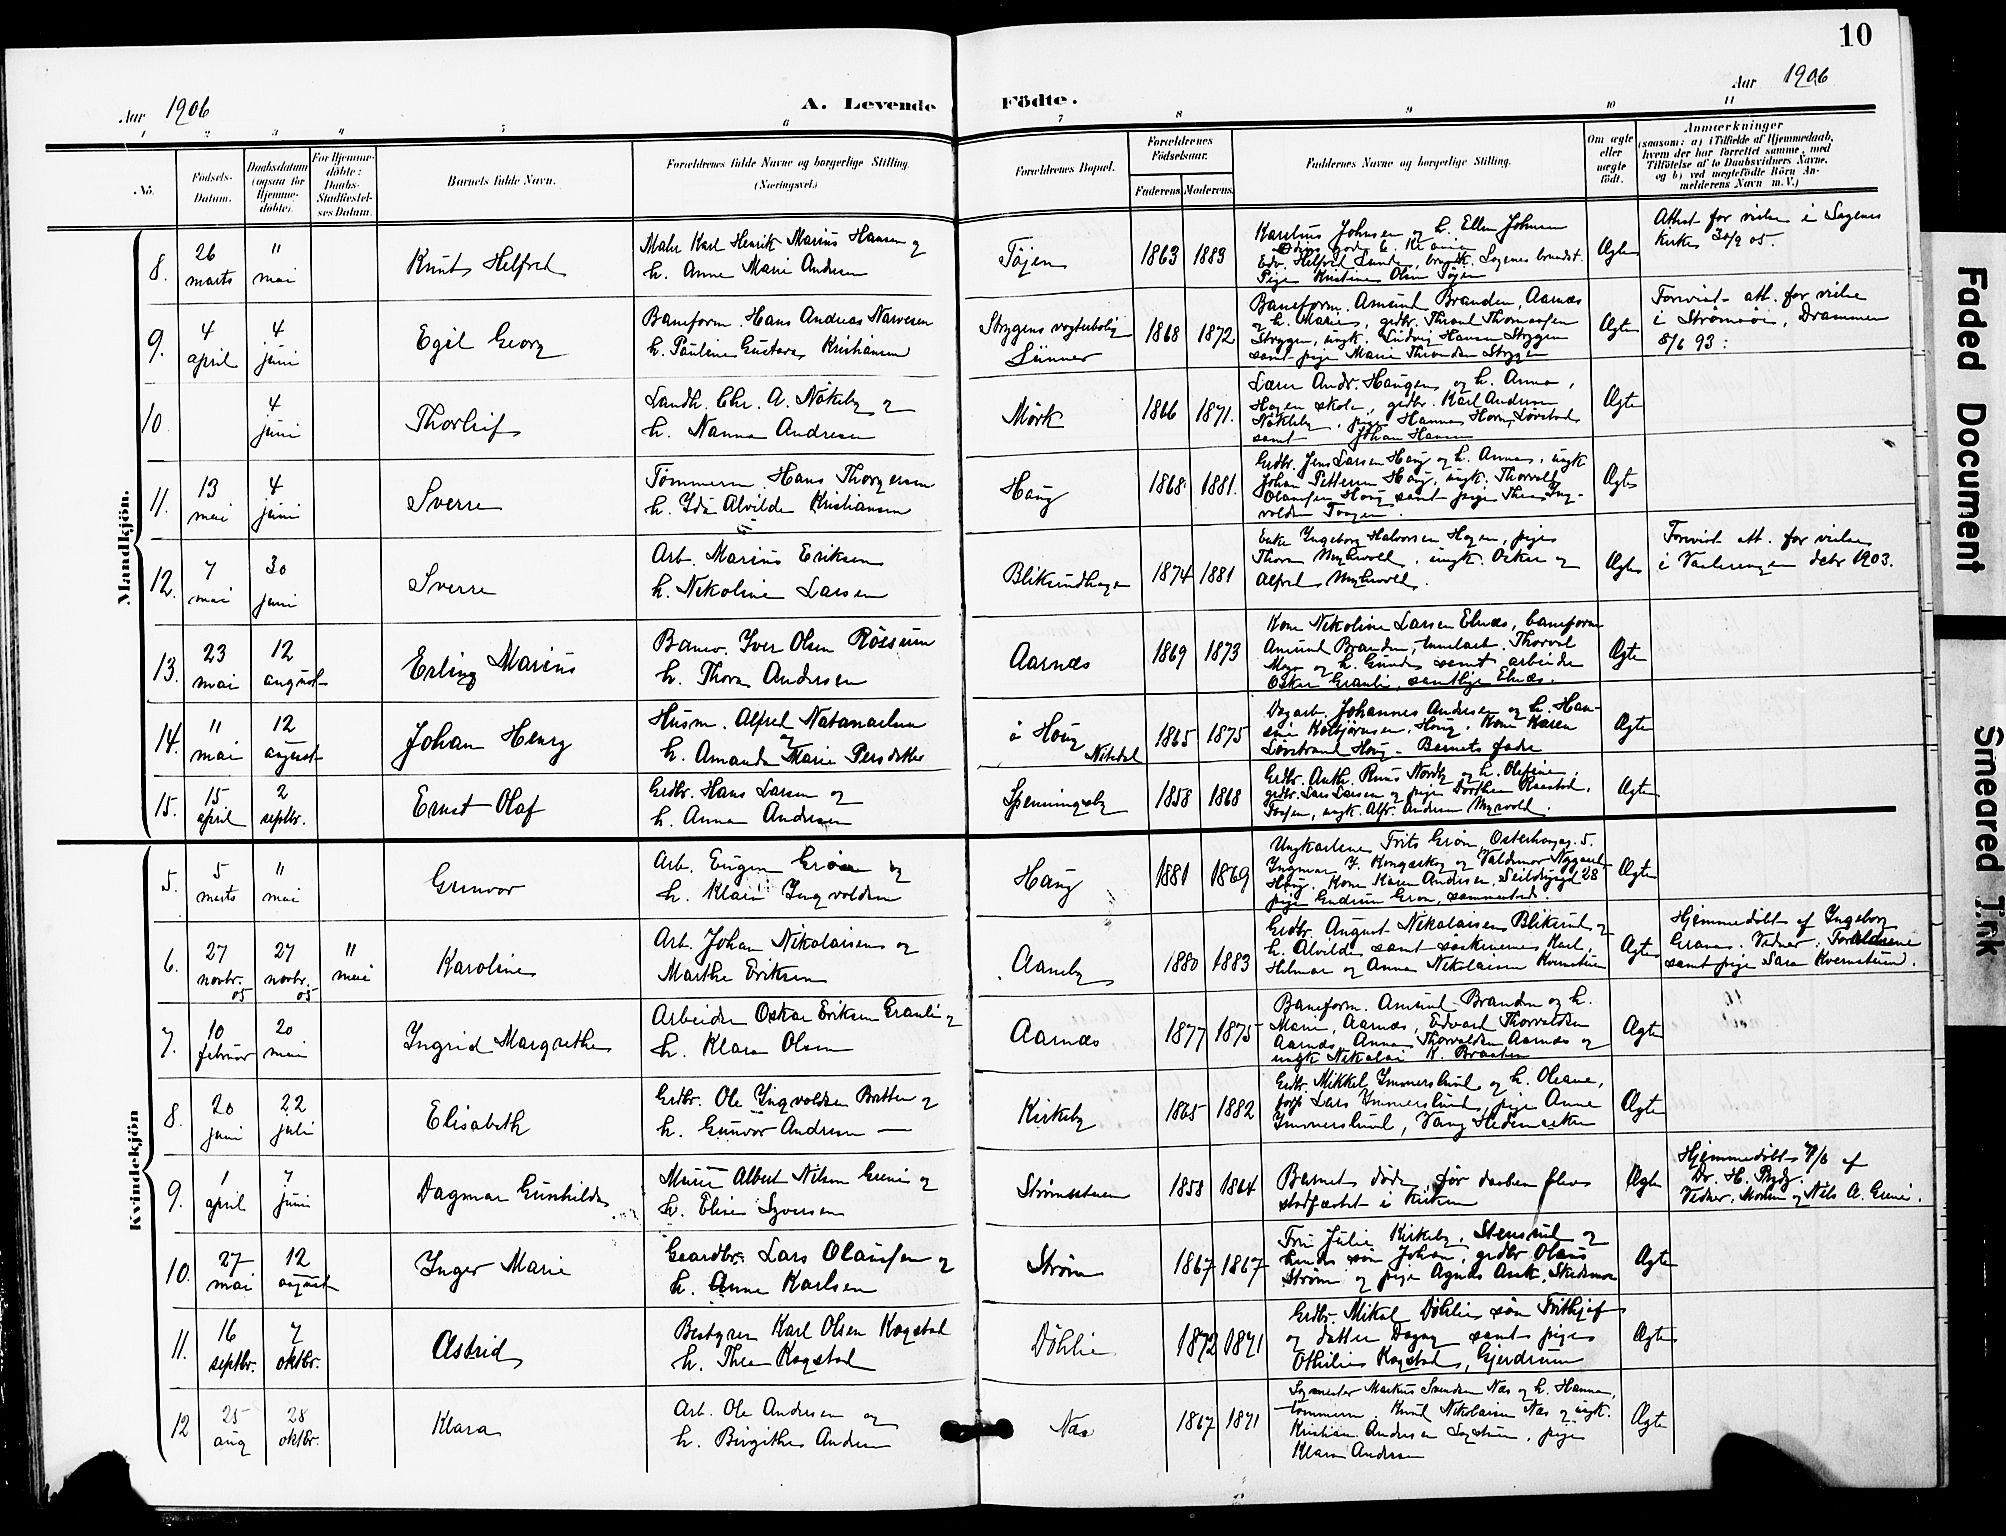 10
Aar 1906
A. Levende Födte.
Aar 1906
1 2 3 4 5 6 7 8 9 10 11
No.
Födsels-
Datum.
Daabsdatum
(ogsaa for
Hjemme-
döbte).
For Hjemme-
döbte:
Daabs-
Stadfæstel-
ses Datum.
Barnets fulde Navn.
Forældrenes fulde Navne og borgerlige Stilling.
(Næringsvei.)
Forældrenes Bopæl.
Forældrenes
Födselsaar.
Faderens. Moderens.
Faddernes Navne og borgerlige Stilling.
Om ægte
eller
uægte
födt.
Anmærkninger
(saasom: a) i Tilfælde af Hjemmedaab,
hvem der har forrettet samme, med
Tilföielse af to Daabsvidners Navne,
og b) ved uægtefödte Börn An-
melderens Navn m. V.)
Mandkjön.
8.
26
marts
"
mai
Knut Helfred
Maler Karl Henrik Marius Hansen og
h. Anna Marie Andersen
Töjen
1863 1883
Karelius Johnsen og h. Ellen Johnsen
Edv. Helfred Lunde, Sagenes
Pige Kristine Olsen Töjen
Ægte
Attest for vielse i Sagenes
Kirke 30/9 05.
9.
4
april
4
juni
Egil Georg
Baneform. Hans Andreas Narvesen
h. Pauline Gustava Kristiansen
Strygens vogterbolig
Lünner
1868 1872
Baneform. Amund Branden, Aarnæs
og h. Marie, grdbr. Thrond Thomassen
Stryggen, ungk. Ludvig Hansen Stryggen
samt pige Marie Throndsen Stryggen
Ægte
Forevist att. for vielse
i Strömsöi, Drammen
8/6 93:
10.
4
juni
Thorleif
Landh. Chr. A. Nökleby og
h. Nanna Andresen
Mörk
1866 1871.
Lærer Andr. Haugen og h. Anna,
Hagen skole, grdbr. Karl Andersen
Nökleby, pige Hanna Horn, Lörstad
samt Johan Hansen
Ægte
11.
13
mai
4
juni
Sverre
Tömmerm. Hans Thorgersen
h. Ida Alvilde Kristiansen
Haug
1868 1881.
Grdbr. Jens Larsen Haug og h. Anna, ungk.
Johan Pettersen Haug, ungk. Thorvald
Olausen Haug samt pige Thea Ing-
voldsen
Ægte
12.
7
mai
30
juni
Sverre
Arb. Marius Eriksen
h. Nikoline Larsen
Bliksrudhagen
1874 1881
Enke Ingeborg Halvorsen Hagen, pige
Thora Myhrvold, ungk. Oskar og
Alfred Myhrvold.
Ægte
Forevist att. for vielse
i Vaalerengen debr 1903.
13.
23
mai
12
august
Erling Marius
Banev. Iver Olsen Röisrum
h. Thora Andersen
Aarnæs
1869 1873
Kone Nikoline Larsen Elnæs, baneform
Amund Branden, Thorval
Moen og h. Gunda samt arbeider
Oskar Granli, samtlige Elnæs.
Ægte
14.
"
mai
12
august
Johan Henry
Husm. Alfred Natanaelsen
og
h. Amanda Marie Persdatter
ö Haug
Nitedal
1865 1875
Dagarb. Johannes Andersen og h. Han-
sine Kolbjörnsen, Haug, Kone Karen
Lövstrand Haug - Barnets fader
Ægte
15.
15
april
2
septbr.
Ernst Olaf
Grdbr. Hans Larsen og
h. Anna Andersen
Spenningsby
1858 1868
Grdbr. Anth. Nordby og h. Olefine,
grdbr. Lars Larsen og pige Dorthea Raastad,
ungk. Alfr. Andersen Myrvold.
Ægte
Kvindekjön
5.
5
marts
"
mai
Gunvor
Arb. Eugen Gröm og
h. Klara Ingvoldsen
Haug
1881 1869
Ungkarlene Frits Gröm, Osterhausg. 5.
Ingmar J. Kongsskog og Valdemar Nygaard
Haug. Kone Karen Andersen, Seildugsgd 28
pige Gudrun Gröm, sammesteds.
Ægte
6.
27
novbr.
05
27
novbr.
05
"
mai
Karoline
Arb. Johan Nikolaisen og
Marthe Eriksen
Aaneby
1880 1883
Grdbr. August Nikolaisen Bliksrud og
h. Alvilde samt sösknerne Karl,
Helmar og Anna Nikolaisen Kvernstuen
Ægte
Hjemmedöbt af Ingeborg
Granas. Vidner: Forældrene
samt pige Sara Kvernstuen.
7.
10
februar
20
mai
Ingrid Margrethe
Arbeider Oskar Eriksen Granli og
h. Klara Olsen
Aarnæs
1877 1875
Baneform. Amund Branden og h.
Marie, Aarnæs, Edvard Thorvaldsen
Aarnæs, Anna Thorvaldsen Aarnæs og
ungk Nikolai K. Braaten
Ægte
8.
20
juni
22
juli
Elisabeth
Grdbr. Ole Ingvoldsen Bratten og
h. Gunvor Andersen —
Kirkeby
1865 1882
Grdbr. Mikkel Immerslund og h. Oleane,
Lars Immerslund, pige Anne
Immerslund, Vang Hedemarken
Ægte
9.
1
april
7
juni
Dagmar Gunhilde
Murer Albert Nilsen Grini og
h. Elise Syversen
Strömsstuen
1858 1864
Barnet döde för daaben blev
stadfæstet i kirken
Ægte
Hjemmedöbt 7/6 af
Dr. H. Rydg.
Vidner: Moren og Nils A. Grini.
10.
27
mai
12
august
Inger Marie
Gaardbr. Lars Olaussen og
h. Anna Karlsen
Ström
1867 1867
Fru Julie Kirkeby, Stensrud og
hendes sön Johan, grdbr Olaus
Ström og pige Agnes Ask, Skedsmo
Ægte
11.
16
septbr.
7
oktbr.
Astrid
Bestyrer Karl Olsen Kogstad
h. Thea Kogstad
Döhlie
1872 1871
Grdbr. Mikal Döhlie sön Frithjof
og datter Dagny samt pige
Othilie Kogstad, Gjerdrum
Ægte
12
25
aug
28
oktbr.
Klara
Arb. Ole Andersen og
h. Birgithe Andersen
Næs
1867 1871
Markus Svendsen Næs og h. Hanna,
tömmerm. Knud Nikolaisen Næs og ungk.
Kristian Andersen, pige
Klara Andersen
Ægte
Faded Document
Smeared Ink